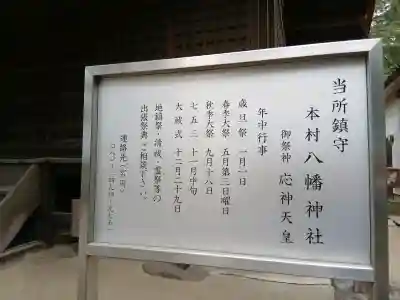 当所鎮守
本村八幡神社
御祭神 応神天皇
年中行事
歳旦祭 一月一日
春季大祭 五月第三日曜日
秋季大祭 九月十八日
七五三 十一月中旬
大祓式 十二月二十九日
地鎮祭・清祓・霊祭等の
出張祭典ご相談下さい。
連絡先(宮司)